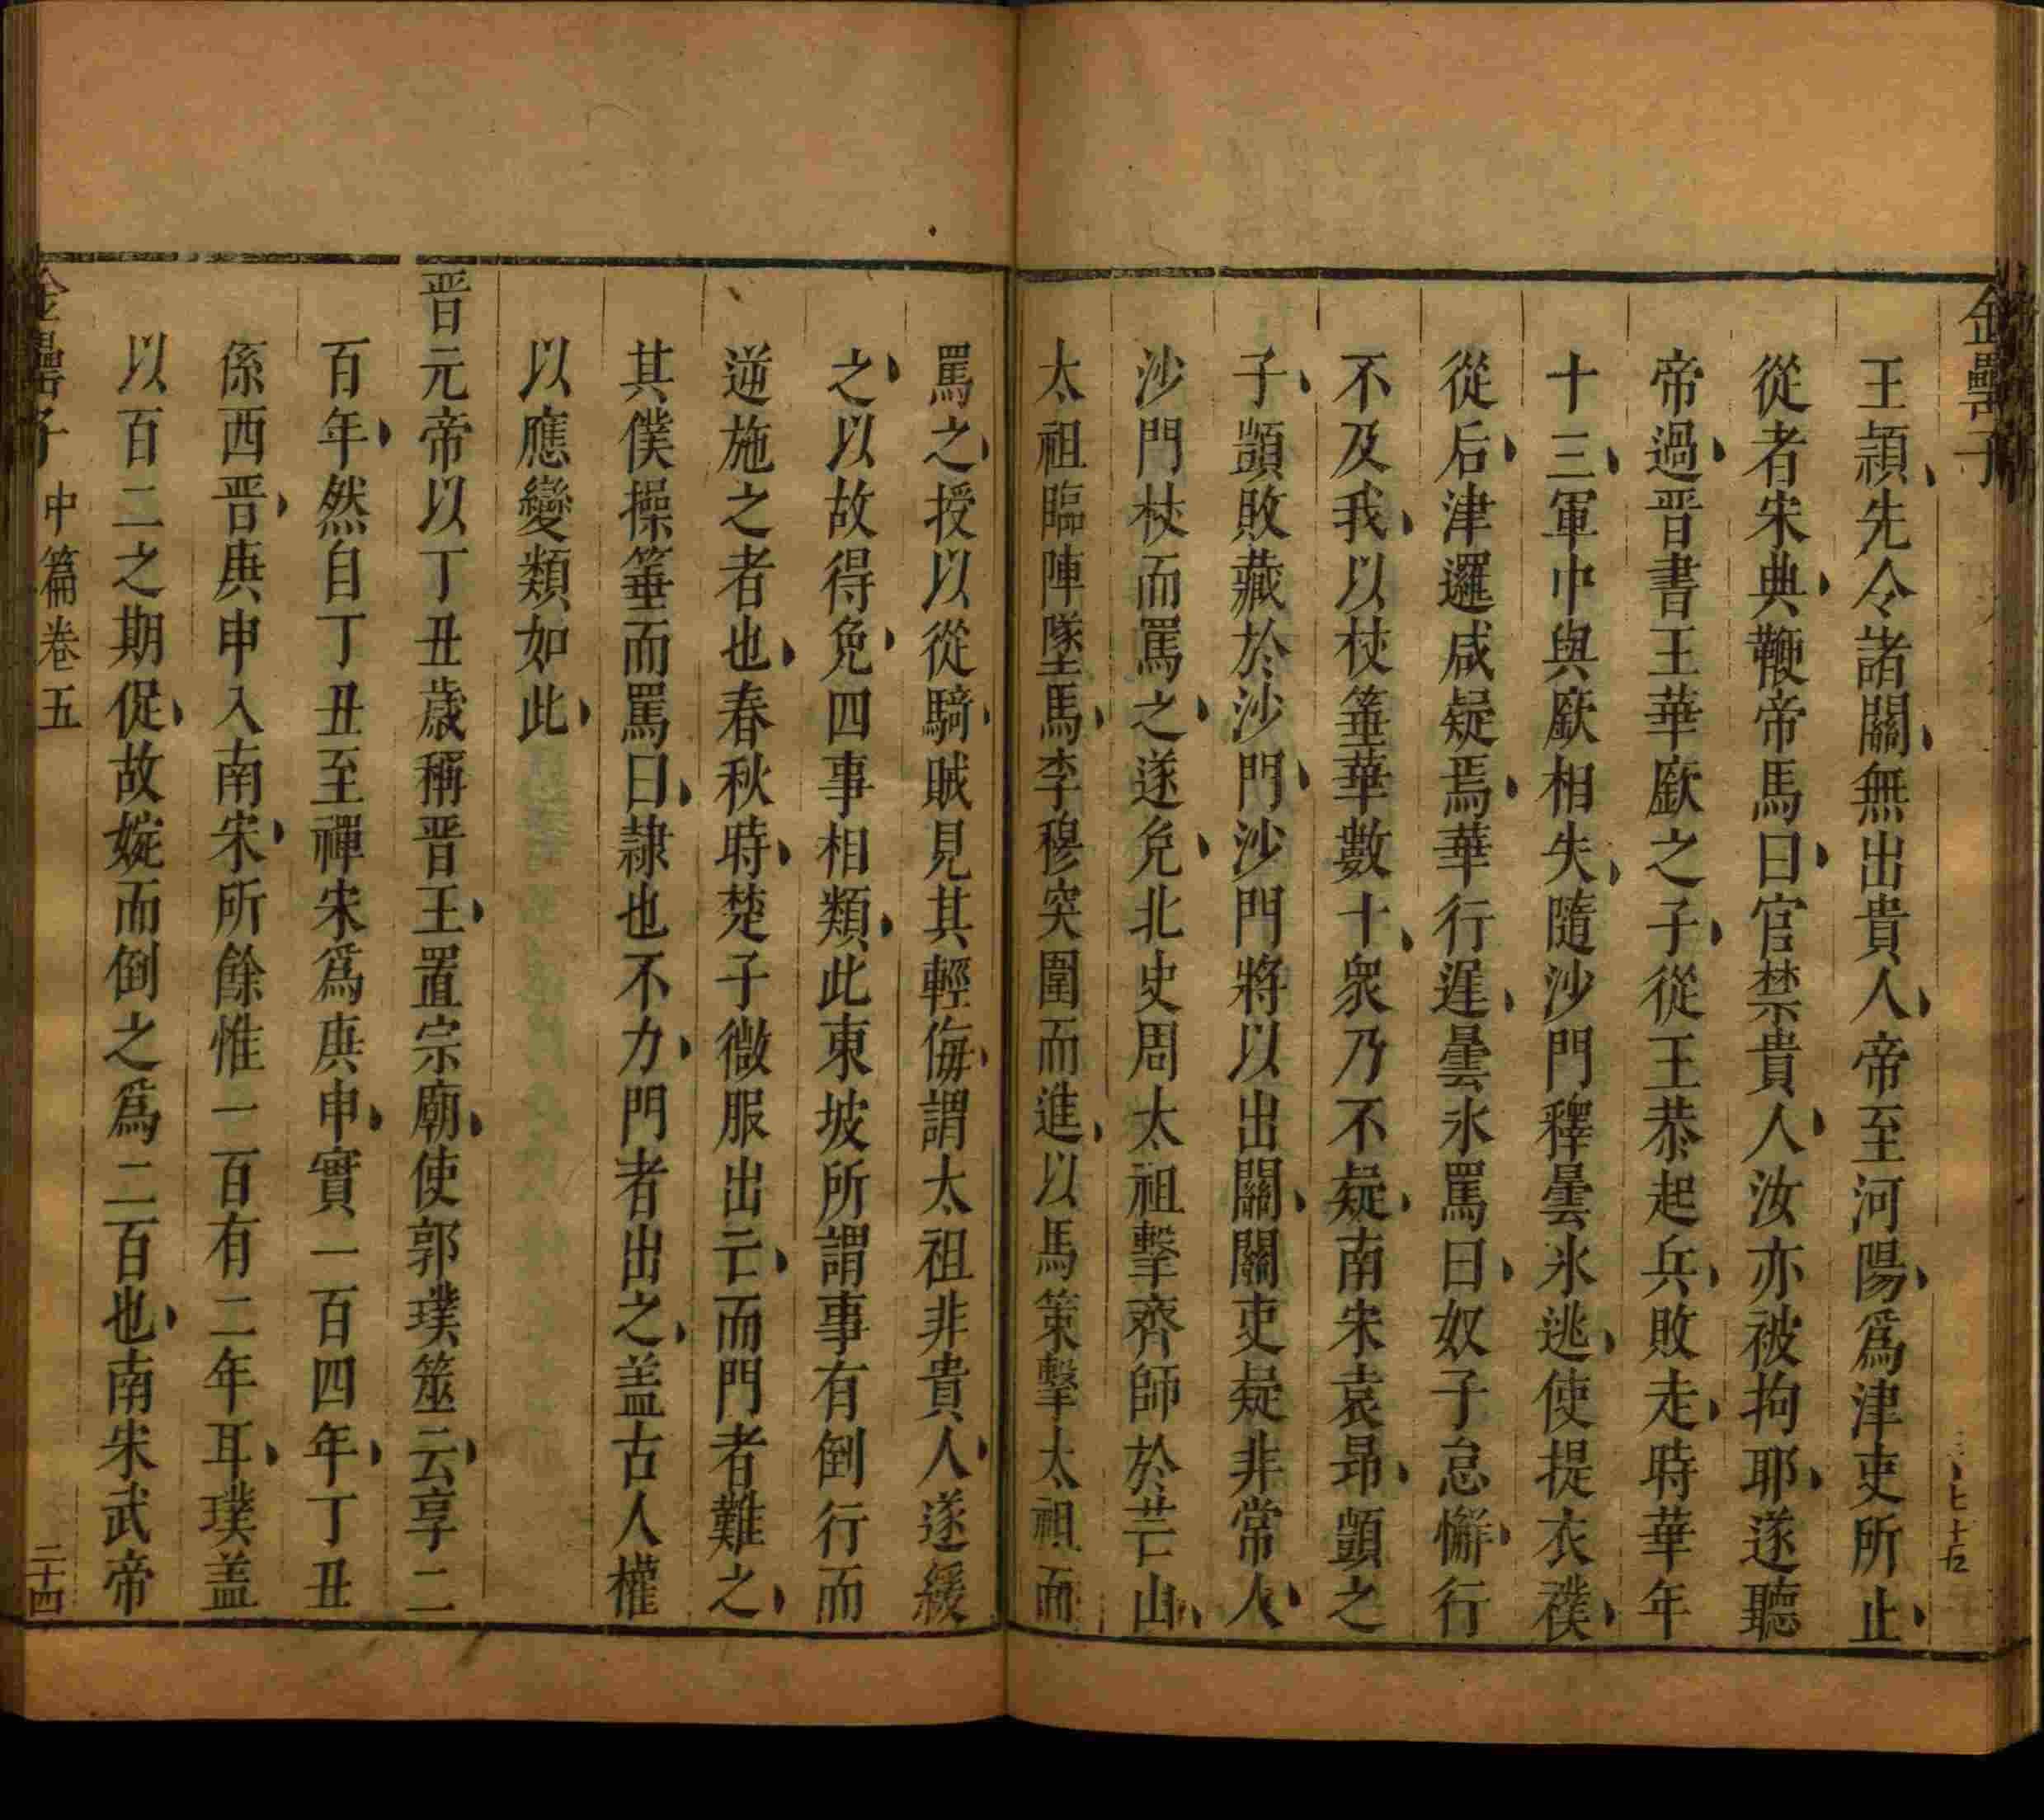 金罍子
王頴先令諸關無出貴人帝至河陽爲津吏所止
從者宋典鞭帝馬曰官禁貴人汝亦被拘耶遂聽
帝過晋書王華廞之子從王恭起兵敗走時華年
十三軍中與廞相失隨沙門釋曇氷逃使提衣襆
從后津邏咸疑焉華行遲曇氷罵曰奴子怠懈行
不及我以杖箠華數十衆乃不疑南宋袁昻顗之
子顗敗藏於沙門沙門將以出關關吏疑非常人
沙門杖而罵之遂免北史周太祖擊齊師於芒山
太祖臨陣墜馬李穆突圍而進以馬策擊太祖而
罵之授以從騎賊見其輕侮謂太祖非貴人遂緩
之以故得免四事相類此東坡所謂事有倒行而
逆施之者也春秋時楚子微服出亡而門者難之
其僕操箠而罵曰隷也不力門者出之盖古人權
以應變類如此
晋元帝以丁丑歲稱晋王置宗廟使郭璞筮云享二
百年然自丁丑至禪宋爲庚申實一百四年丁丑
係西晋庚申入南宋所餘惟一百有二年耳璞盖
以百二之期促故婉而倒之爲二百也南宋武帝
金罍子 中篇卷五 二十四